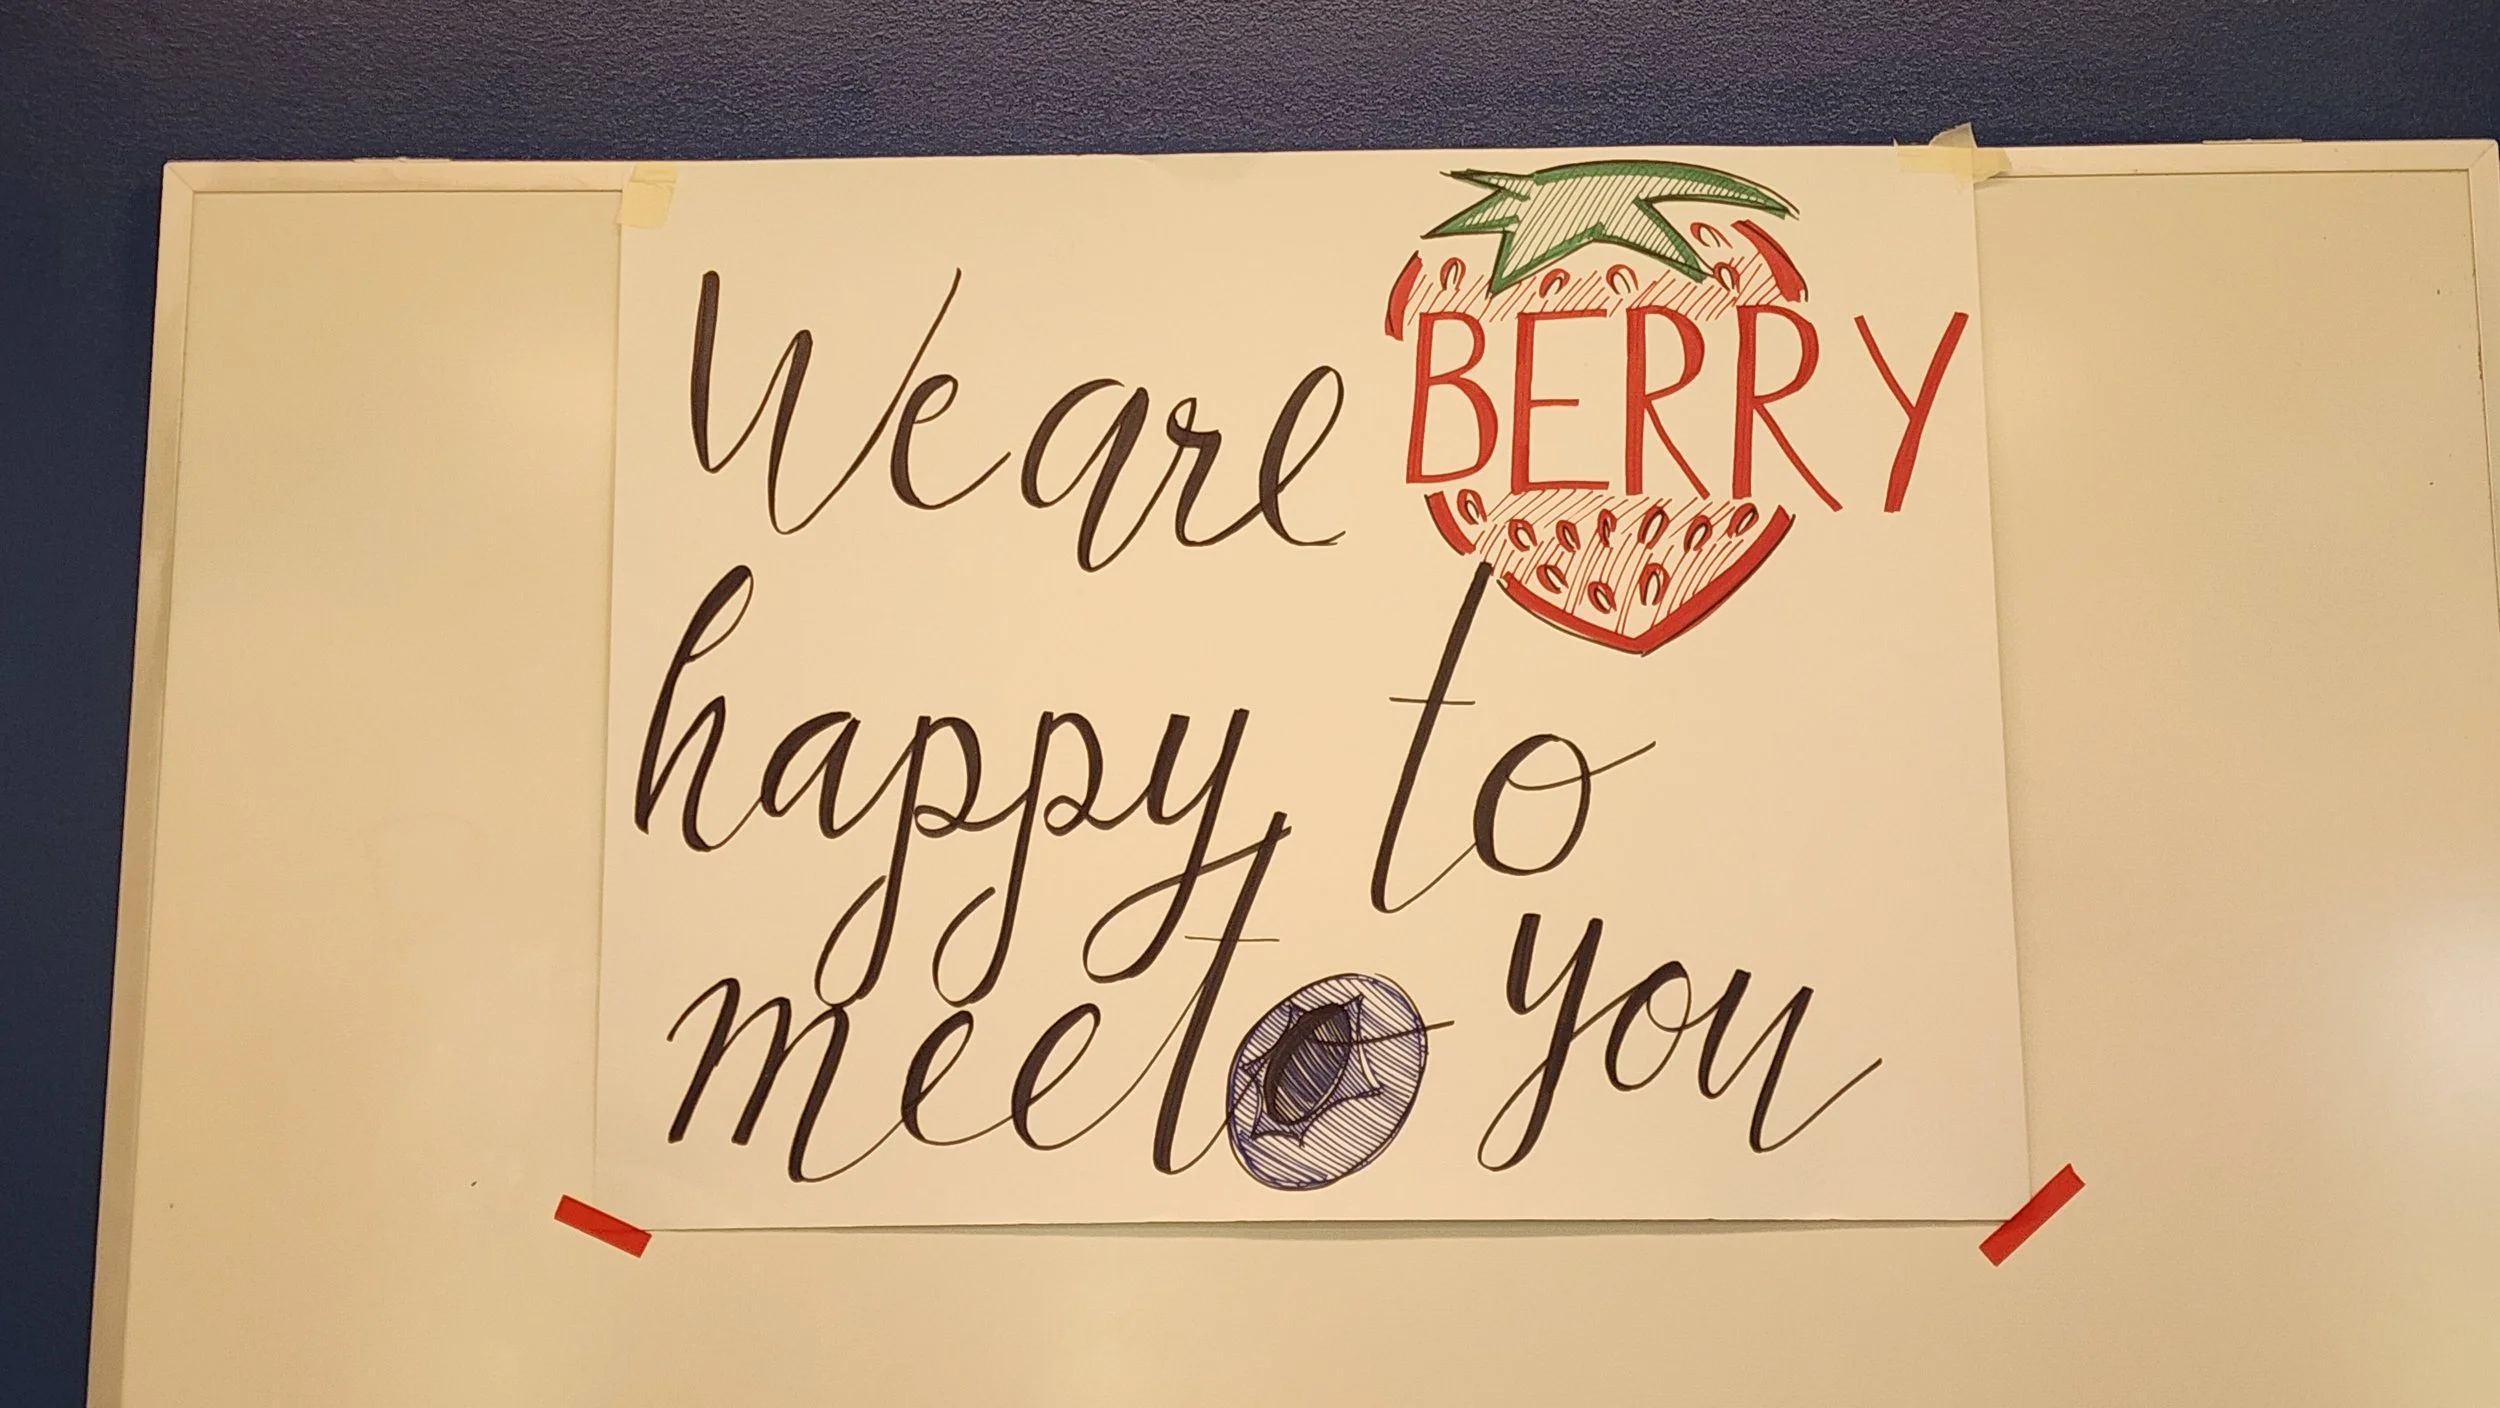 We are BERRY
happy to
meet you